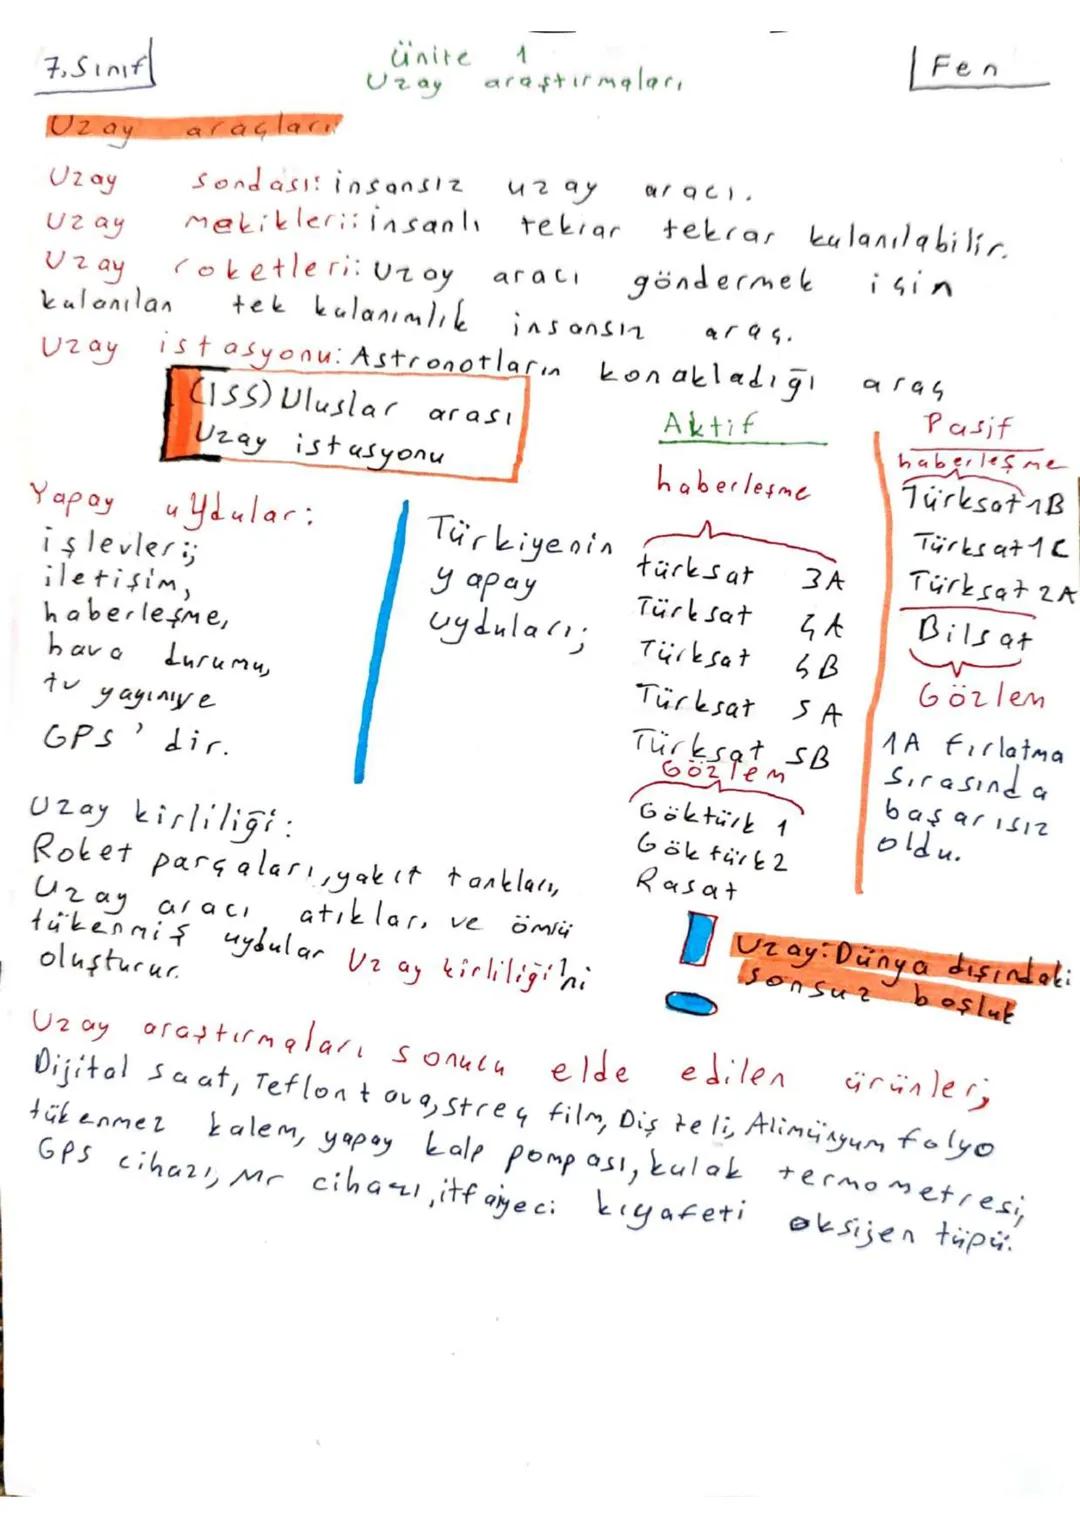 7. Sınıf
ünite 1
Uzay araştırmaları
Fen
Uzay araçları
Uzay sondası: insansız uzay aracı.
Uzay mekikleri: insanlı tekrar tekrar kulanılabilir.
Uzay roketleri: Uzay aracı göndermek için
kulanılan tek kulanımlık insansız araç.
Uzay istasyonu: Astronotların konakladığı araç
(ISS) Uluslar arası
Uzay istasyonu
Yapay uydular:
işlevleri;
iletişim,
haberleşme,
hava durumu,
tv yayını ve
GPS' dir.
Türkiyenin
yapay
uyduları;
Aktif
haberleşme
türksat 3A
Türksat 4A
Türksat 4B
Türksat 5A
Türksat 5B
Gözlem
Göktürk 1
Göktürk 2
Rasat
Pasif
haberleşme
Türksat 1B
Türksat 1C
Türksat 2A
Bilsat
Gözlem
1A fırlatma
sırasında
başarısız
oldu.
Uzay kirliliği:
Roket parçaları, yakıt tankları,
Uzay aracı atıkları, ve ömrü
tükenmiş uydular Uzay kirliliği'ni
oluşturur.
Uzay: Dünya dışındaki
sonsuz boşluk
Uzay araştırmaları sonucu elde edilen ürünler;
Dijital saat, Teflon tava, streç film, Diş teli, Alimünyum folyo
tükenmez kalem, yapay kalp pompası, kulak termometresi,
GPS cihazı, Mr cihazı, itfaiyeci kıyafeti oksijen tüpü.